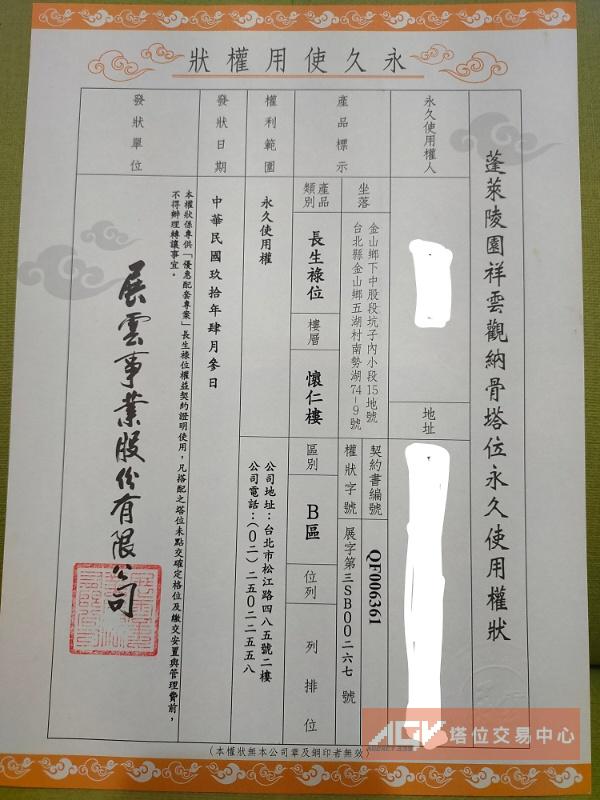 永久使用權狀
蓬萊陵園祥雲觀納骨塔位永久使用權狀
永久使用權人
地址
產品標示
坐落
金山鄉下中股段坑子內小段15地號
台北縣金山鄉五湖村南勢湖74-9號
契約書編號
QF006361
權狀字號
展字第三SB00二六七 號
產品類別
長生祿位
樓層
懷仁樓
區別
B區
位列
列 排 位
權利範圍
永久使用權
公司地址：台北市松江路四八五號二樓
公司電話：(〇二)二五〇二二五五八
發狀日期
中華民國玖拾年肆月參日
發狀單位
本權狀係專供「優惠配套專案」長生祿位權益契約證明使用，凡搭配之塔位未點交確定格位及繳交安置與管理費前，
不得辦理轉讓事宜。
展雲事業股份有限公司
(本權狀無本公司章及鋼印者無效)
AGK 塔位交易中心